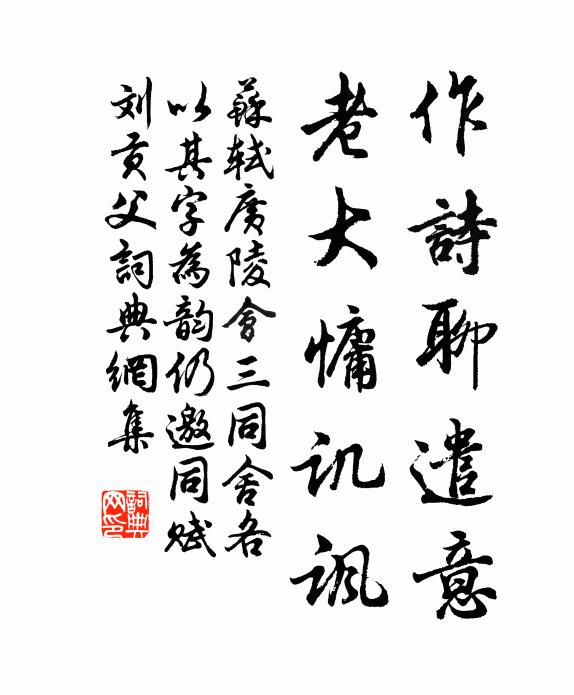 作詩聊遣意
老大慵讥讽
蘇軾廣陵會三同舍各
以其字為韵仍邀同赋
刘貢父詞典網集
詞典网印